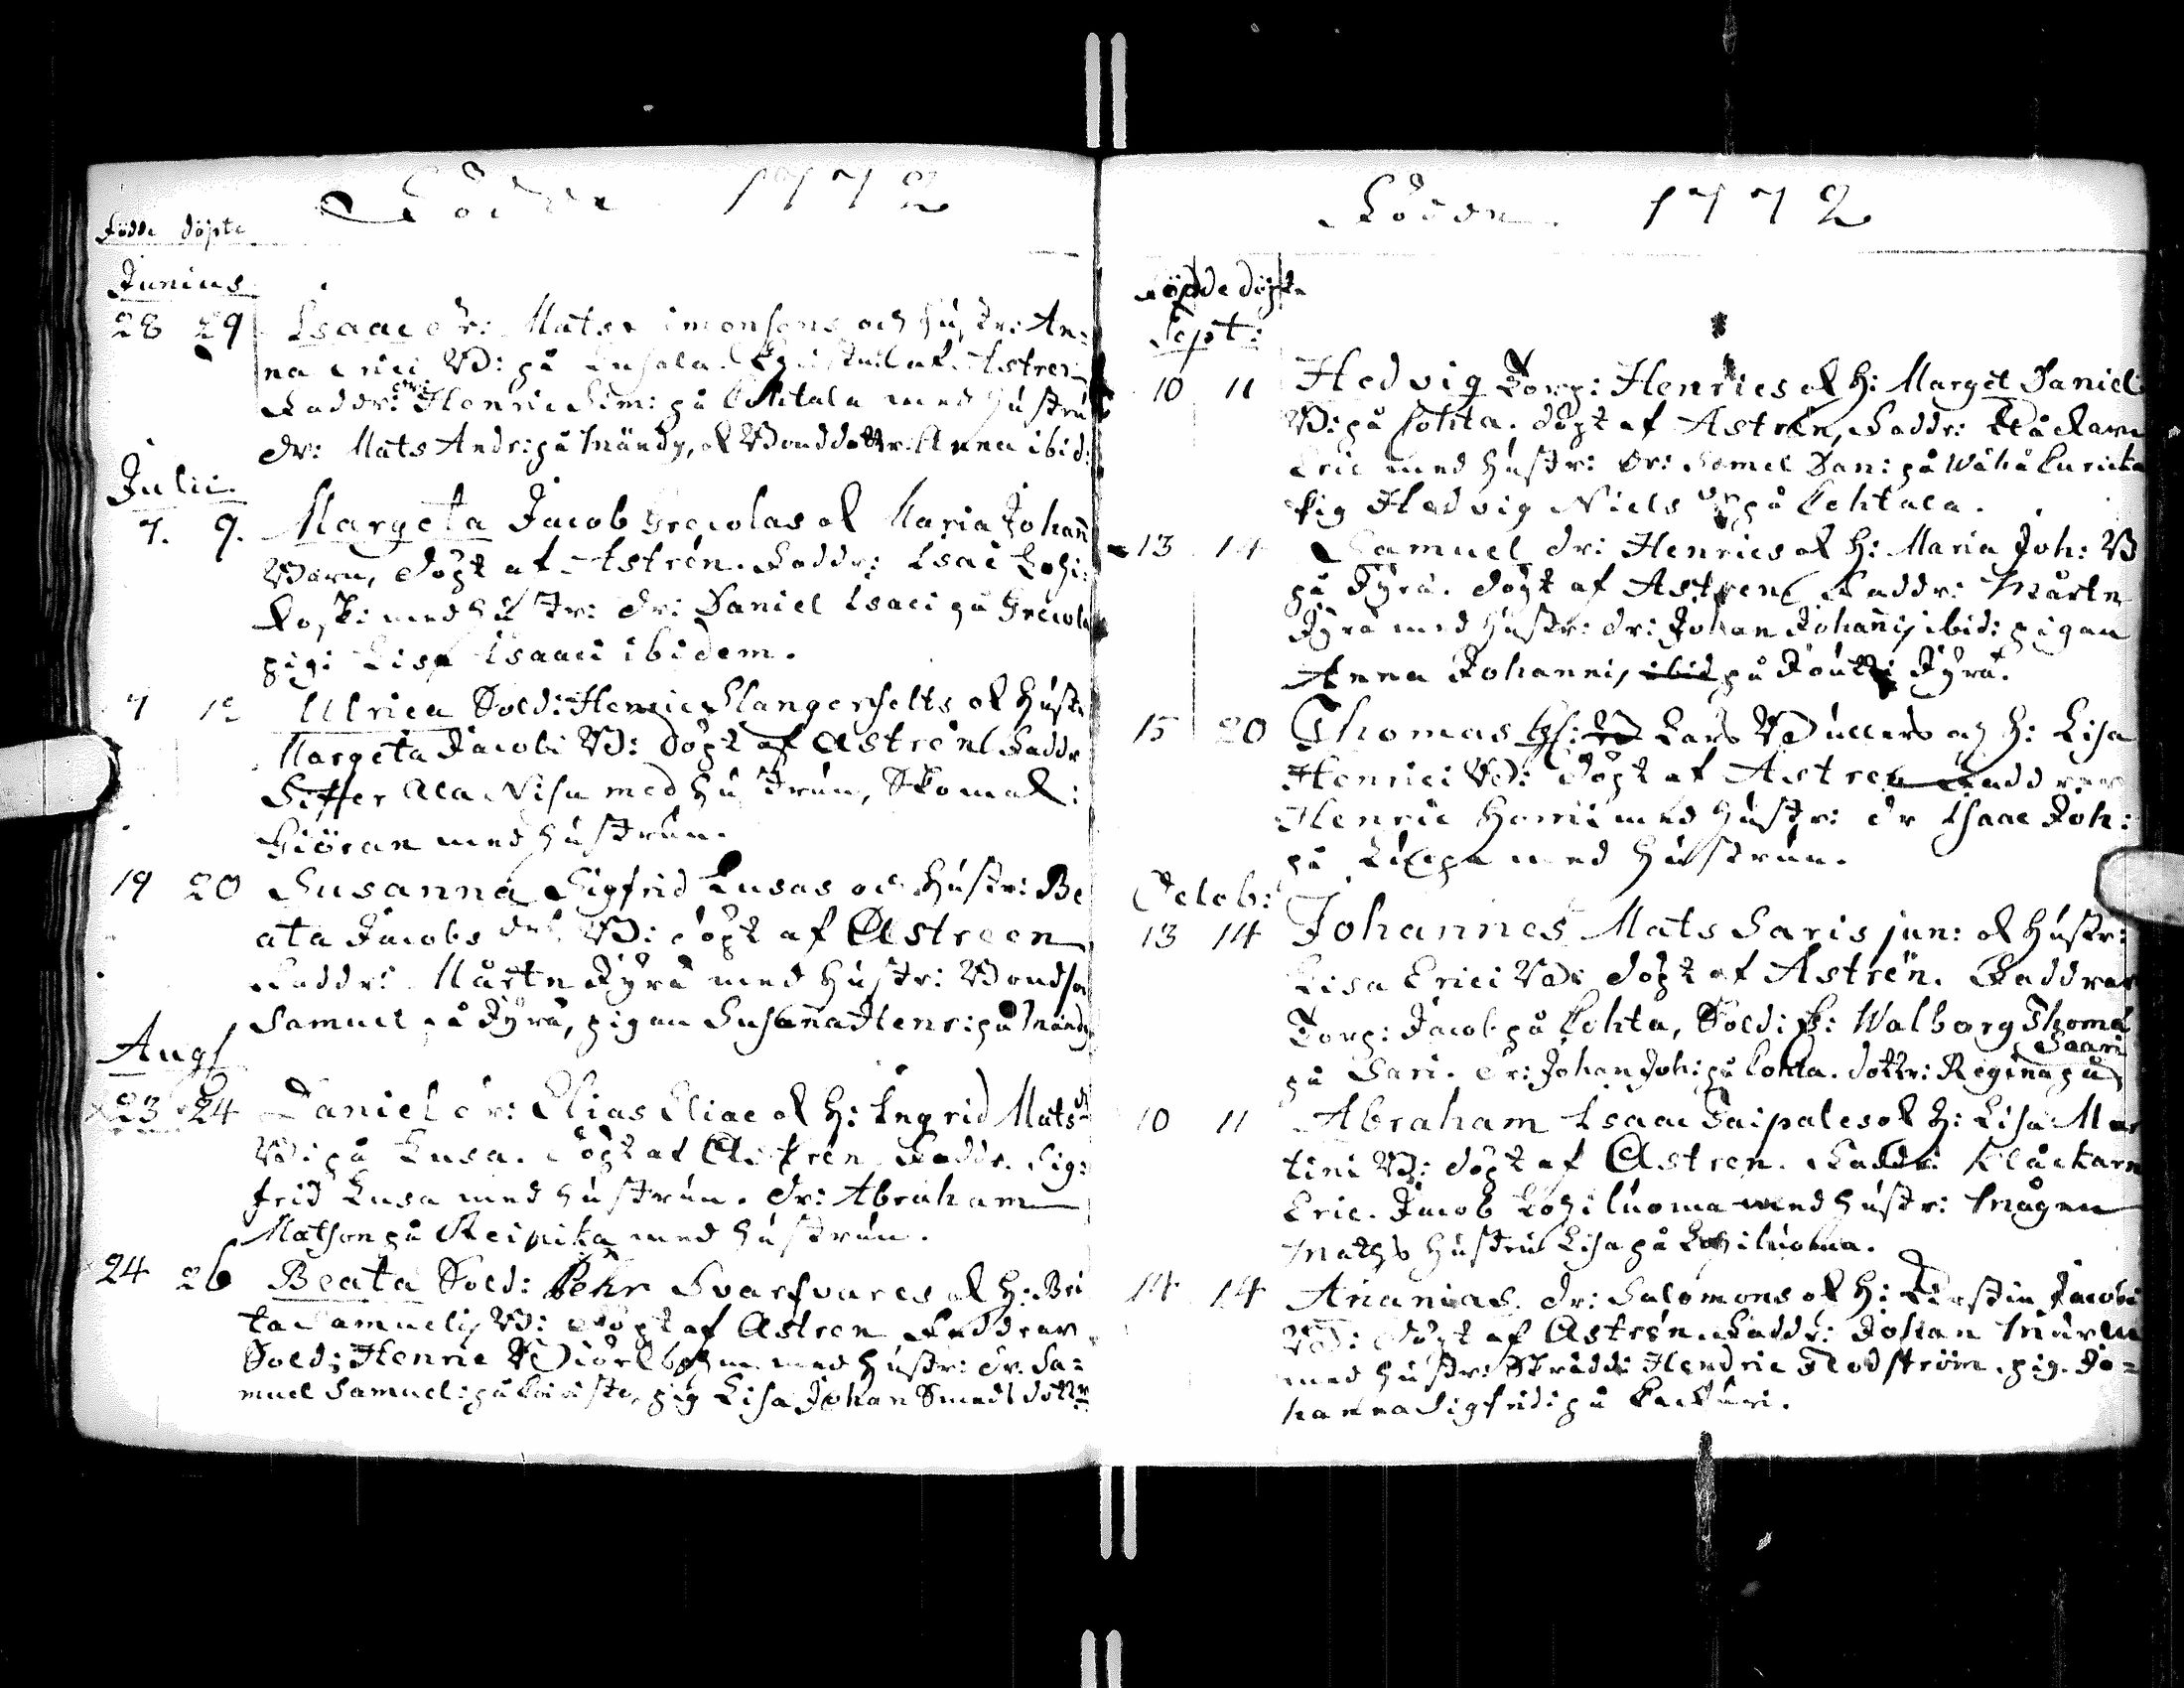 Födde 1772
Födde döpte
Junius
28 29 Isaac dr: Mats Simonsons och hustr: An-
na Erici B: på Lusala. Christnat af Astren
Faddr: Henric Sim: på med hustru
dr: Mats Andr: på Mändy, & Bonddottr: Anna ibid:
Julii.
7. 9. Margeta Jacob Grecolas & Maria Johan
Barn, döpt af Astrén. Faddr: Isac Kohi-
koski med hustr: dr: Daniel Isaci på Grecola
pig: Lisa Isaaci ibidem.
7 12 Ulrica Sold: Henric Slangerfelts & hustr
Margeta Jacobi B: döpt af Astrén Faddr
Siffer Ala Nisu med hustrun, Skomak:
Giöran med hustrun.
19 20 Susanna Sigfrid Lusas och hustr: Be
ata Jacobs dr B: döpt af Astreen
Faddr: Mårten Jyrä med hustr: Bondson
Samuel på Jyrä, pigan Susanna Henr: på Mändy
Aug
23 24 Daniel dr: Elias Eliae & h: Ingrid Mats dr
B: på Lusa. döpt af Astrén Faddr. Sig-
frid Lusa med hustrun. dr: Abraham
Matson på Reipika med hustrun.
24 26 Beata Sold: Pehr Svarfvares & h: Bri
ta Samuelis B: döpt af Astren Faddrar
Sold: Henric Biörkbohm med hustr: dr. Sa-
muel Samuel: på pig Lisa Johan Smeds dottr
Födde. 1772
Födde döpte
Sept:
10 11 Hedvig Torp: Henrics & h: Marget Danieli
B: på Lohta. döpt af Astrén, Faddr: Klåckarn
Eric med hustr: dr: Samel Dan: på Wähä Kuricka
pig Hedvig Niels dr på Lehtala.
13 14 Samuel dr: Henrics & h: Maria Joh: B
på Jyrä. döpt af Astren Faddr: Mårten
Jyrä med hustr: dr: Johan Johannis ibid: pigan
Anna Johannis ibid på Joutti Jyrä.
15 20 Thomas Lars Bullers och h: Lisa
Henrici B: döpt af Astren Faddrar
Henric Harri med hustr: dr Isaac Joh:
på Luopa med hustrun.
Octob:
13 14 Johannes Mats Saris jun: & hustr:
Lisa Erici B: döpt af Astrén. Faddrar
Torp: Jacob på Lohta, Sold: h: Walborg Thomä
på Sari. dr: Johan Joh: på Lohta. dottr: Regina på Saari
10 11 Abraham Isaac Paipales & h: Lisa Mar
tini B: döpt af Astren. Faddr: Klåckarn
Eric. Jacob Kohiluoma med hustr: Mågen
Mathis hustru Lisa på Kohiluoma.
14 14 Ananias. dr: Salomons & h: Kirstin Jacobi
B: döpt af Astrén. Faddr: Johan
med hustr: Skrädd: Hendric Flodström. pig. Jo-
hanna Sigfrids: på Lackari.